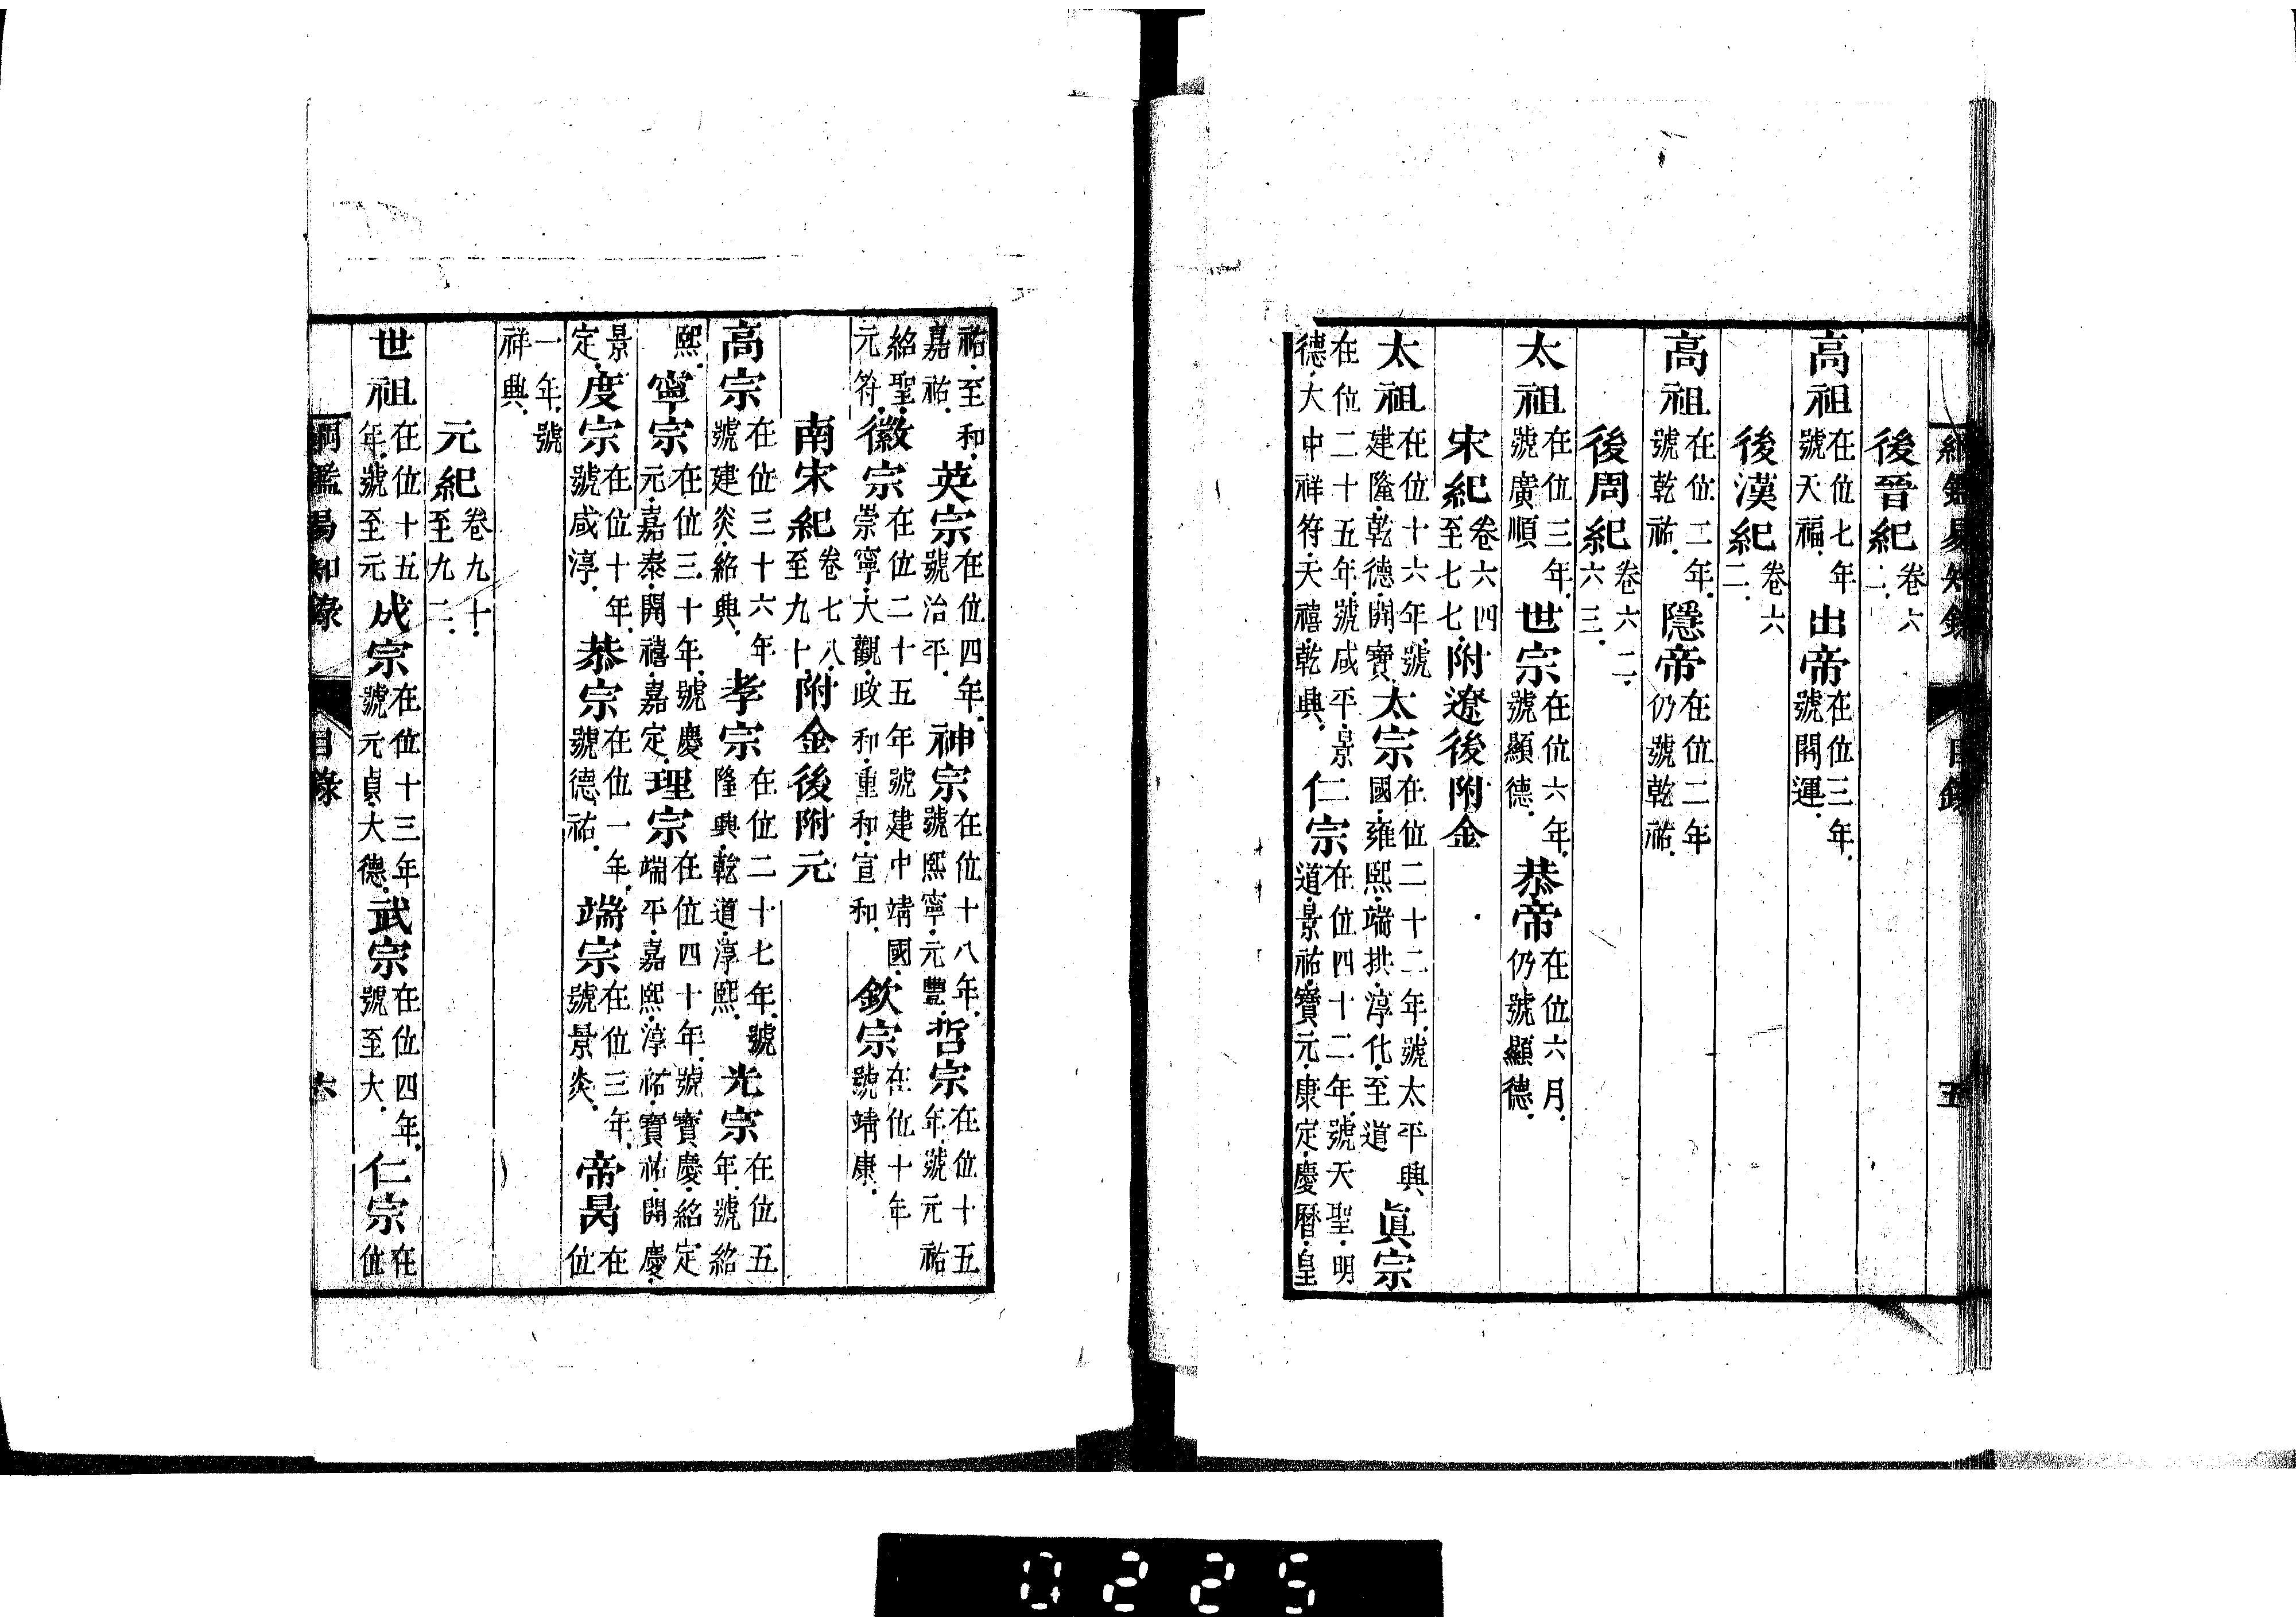 綱鑑易知錄 目錄 五
後晉紀卷六二
高祖在位七年號天福出帝在位三年號開運
後漢紀卷六二
高祖在位二年號乾祐隱帝在位二年仍號乾祐
後周紀卷六二六三
太祖在位三年號廣順世宗在位六年號顯德恭帝在位六月仍號顯德
宋紀卷六四至七七附遼後附金
太祖在位十六年號建隆乾德開寶太宗在位二十二年號太平興國雍熙端拱淳化至道眞宗
在位二十五年號咸平景德大中祥符天禧乾興仁宗在位四十二年號天聖明道景祐寶元康定慶曆皇
祐至和嘉祐英宗在位四年號治平神宗在位十八年號熙寧元豐哲宗在位十五年號元祐
紹聖元符徽宗在位二十五年號建中靖國崇寧大觀政和重和宣和欽宗在位十年號靖康
南宋紀卷七八至九十附金後附元
高宗在位三十六年號建炎紹興孝宗在位二十七年號隆興乾道淳熙光宗在位五年號紹
熙寧宗在位三十年號慶元嘉泰開禧嘉定理宗在位四十年號寶慶紹定端平嘉熙淳祐寶祐開慶
景定度宗在位十年號咸淳恭宗在位一年號德祐端宗在位三年號景炎帝昺在位
一年號祥興
元紀卷九十至九二
世祖在位十五年號至元成宗在位十三年號元貞大德武宗在位四年號至大仁宗在位
綱鑑易知錄 目錄 六
0225